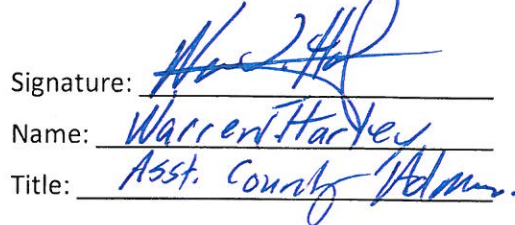 Signature:
Name: Warren Harvey
Title: Asst. County Admin.